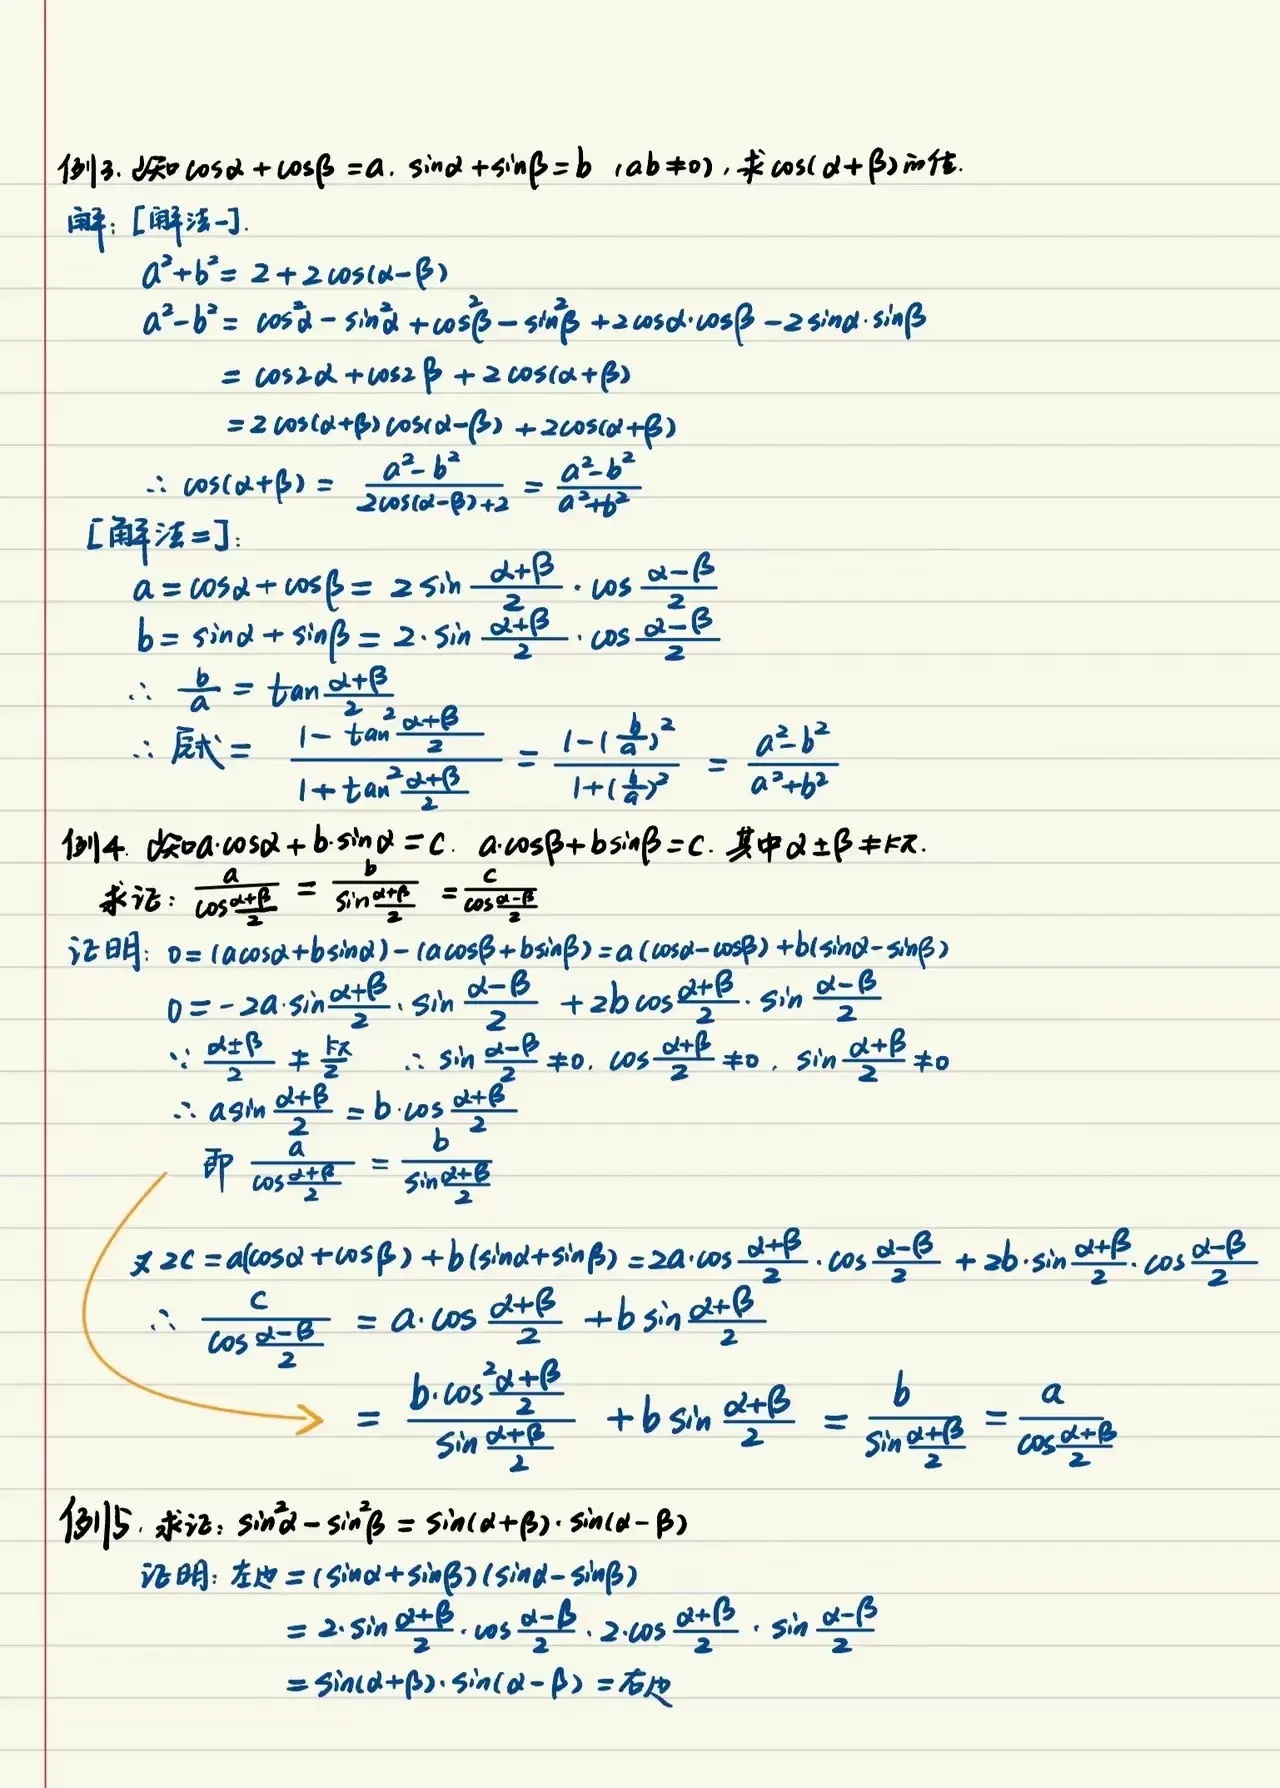 例3. 已知 cosα + cosβ = a. sinα + sinβ = b (ab≠0), 求 cos(α+β) 的值.
解: [解法一].
a²+b² = 2+2cos(α-β)
a²-b² = cos²α - sin²α + cos²β - sin²β + 2cosα·cosβ - 2sinα·sinβ
= cos2α + cos2β + 2cos(α+β)
= 2cos(α+β)cos(α-β) + 2cos(α+β)
∴ cos(α+β) = (a²-b²)/(2cos(α-β)+2) = (a²-b²)/(a²+b²)
[解法二]:
a = cosα + cosβ = 2sin (α+β)/2 · cos (α-β)/2
b = sinα + sinβ = 2·sin (α+β)/2 · cos (α-β)/2
∴ b/a = tan (α+β)/2
∴ 原式 = (1-tan² (α+β)/2)/(1+tan² (α+β)/2) = (1-(b/a)²)/(1+(b/a)²) = (a²-b²)/(a²+b²)
例4. 已知 a·cosα + b·sinα = c. a·cosβ + bsinβ = c. 其中 α±β≠kπ.
求证: a/(cos (α+β)/2) = b/(sin (α+β)/2) = c/(cos (α-β)/2)
证明: 0 = (acosα+bsinα) - (acosβ+bsinβ) = a(cosα-cosβ) + b(sinα-sinβ)
0 = -2a·sin (α+β)/2 · sin (α-β)/2 + 2b cos (α+β)/2 · sin (α-β)/2
∵ (α±β)/2 ≠ kπ/2 ∴ sin (α-β)/2 ≠0. cos (α+β)/2 ≠0, sin (α+β)/2 ≠0
∴ asin (α+β)/2 = b·cos (α+β)/2
即 a/(cos (α+β)/2) = b/(sin (α+β)/2)
又 2c = a(cosα+cosβ) + b(sinα+sinβ) = 2a·cos (α+β)/2 · cos (α-β)/2 + 2b·sin (α+β)/2 · cos (α-β)/2
∴ c/(cos (α-β)/2) = a·cos (α+β)/2 + b sin (α+β)/2
= (b·cos² (α+β)/2)/(sin (α+β)/2) + b sin (α+β)/2 = b/(sin (α+β)/2) = a/(cos (α+β)/2)
例5. 求证: sin²α - sin²β = sin(α+β)·sin(α-β)
证明: 左边 = (sinα+sinβ)(sinα-sinβ)
= 2·sin (α+β)/2 · cos (α-β)/2 · 2·cos (α+β)/2 · sin (α-β)/2
= sin(α+β)·sin(α-β) = 右边